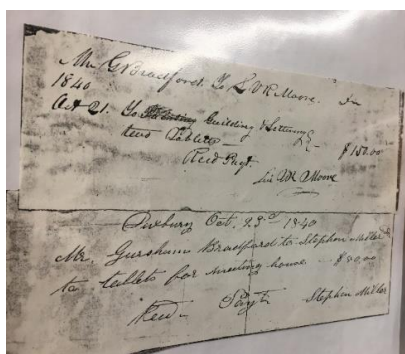 Mr G Bradford To L. V R Moore. Dr
1840
Oct 21. To Guilding & Lettering
two Tablets $150.00
Recd Payt.
V R Moore
Duxbury Oct. 23rd 1840
Mr. Gursham Bradford to Stephen Miller Dr
to tablets for meeting house $80.00
Recd Payt Stephen Miller